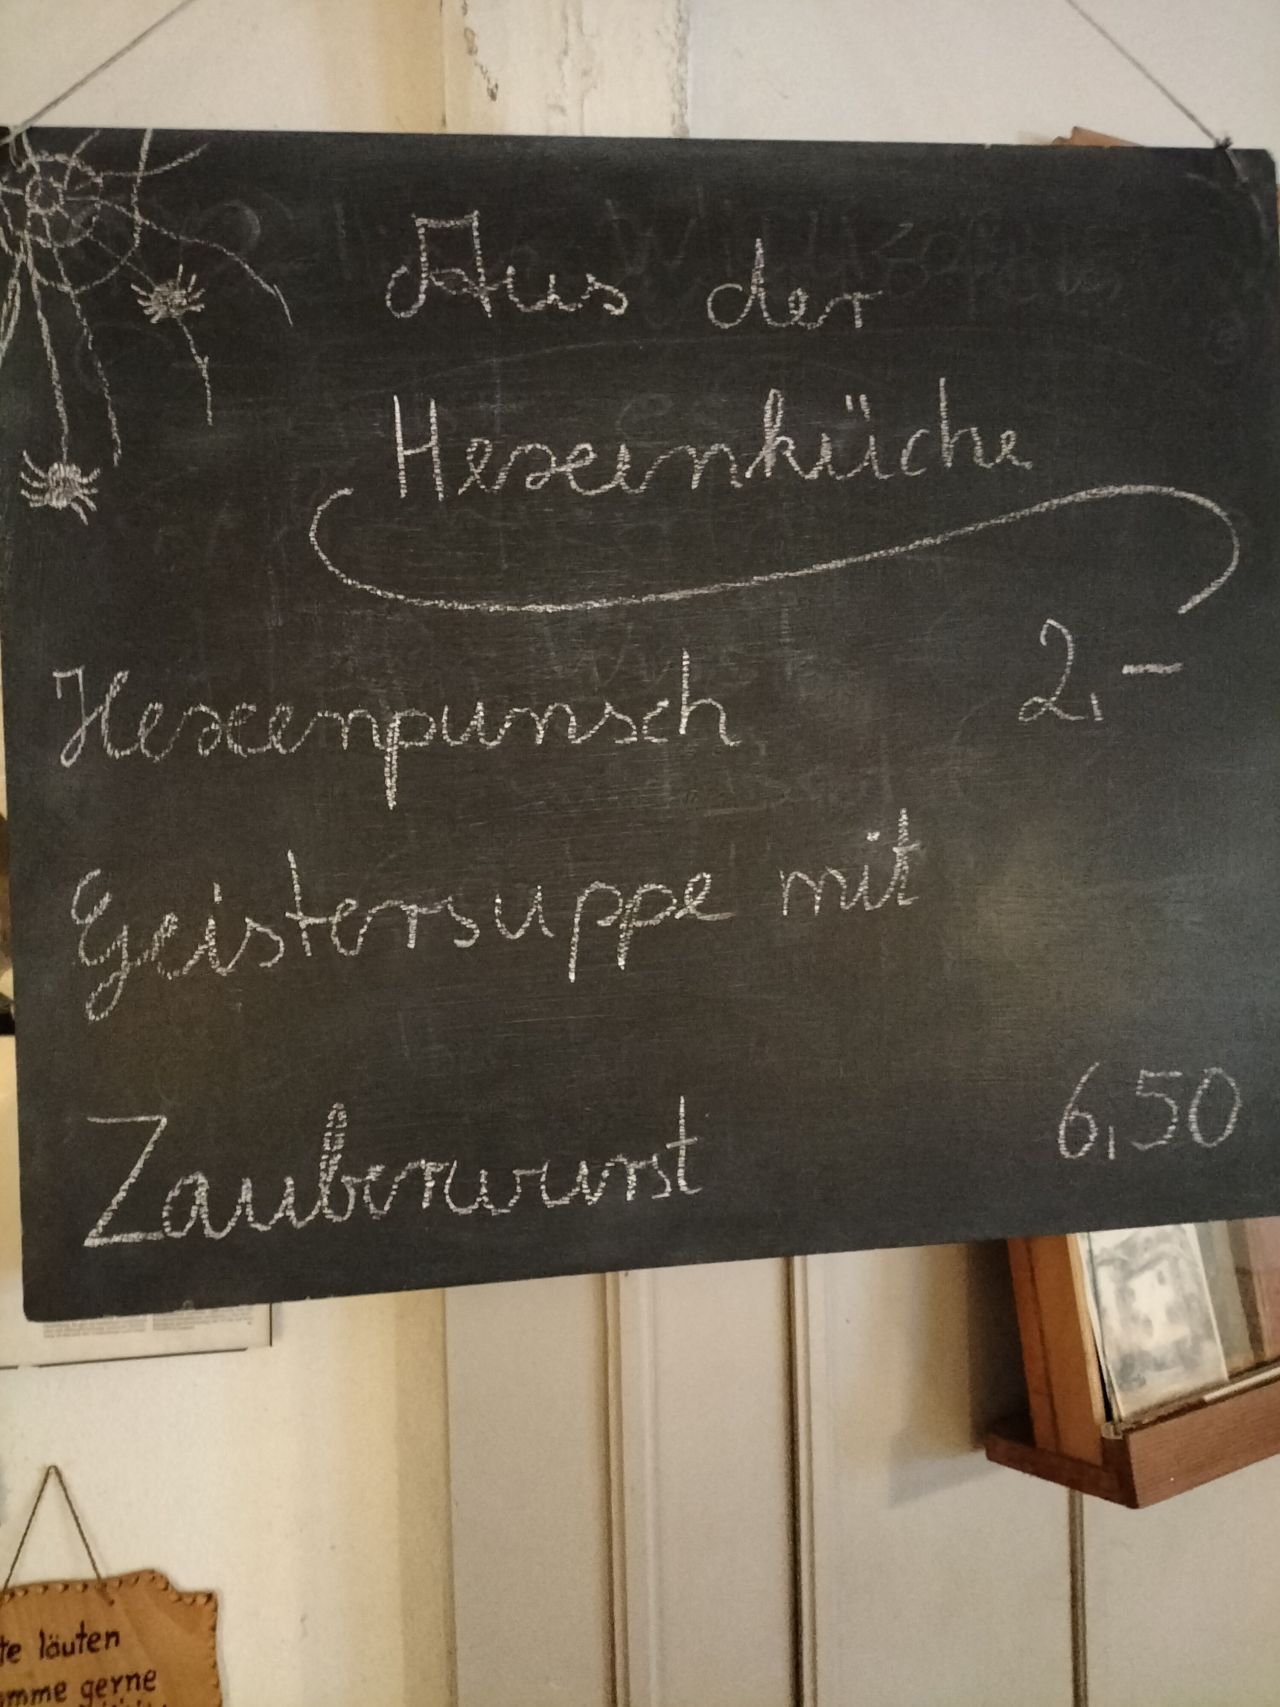 Aus der
Hexenküche
Hexenpunsch 2,-
Geistersuppe mit
Zauberwurst 6,50
läuten
gerne